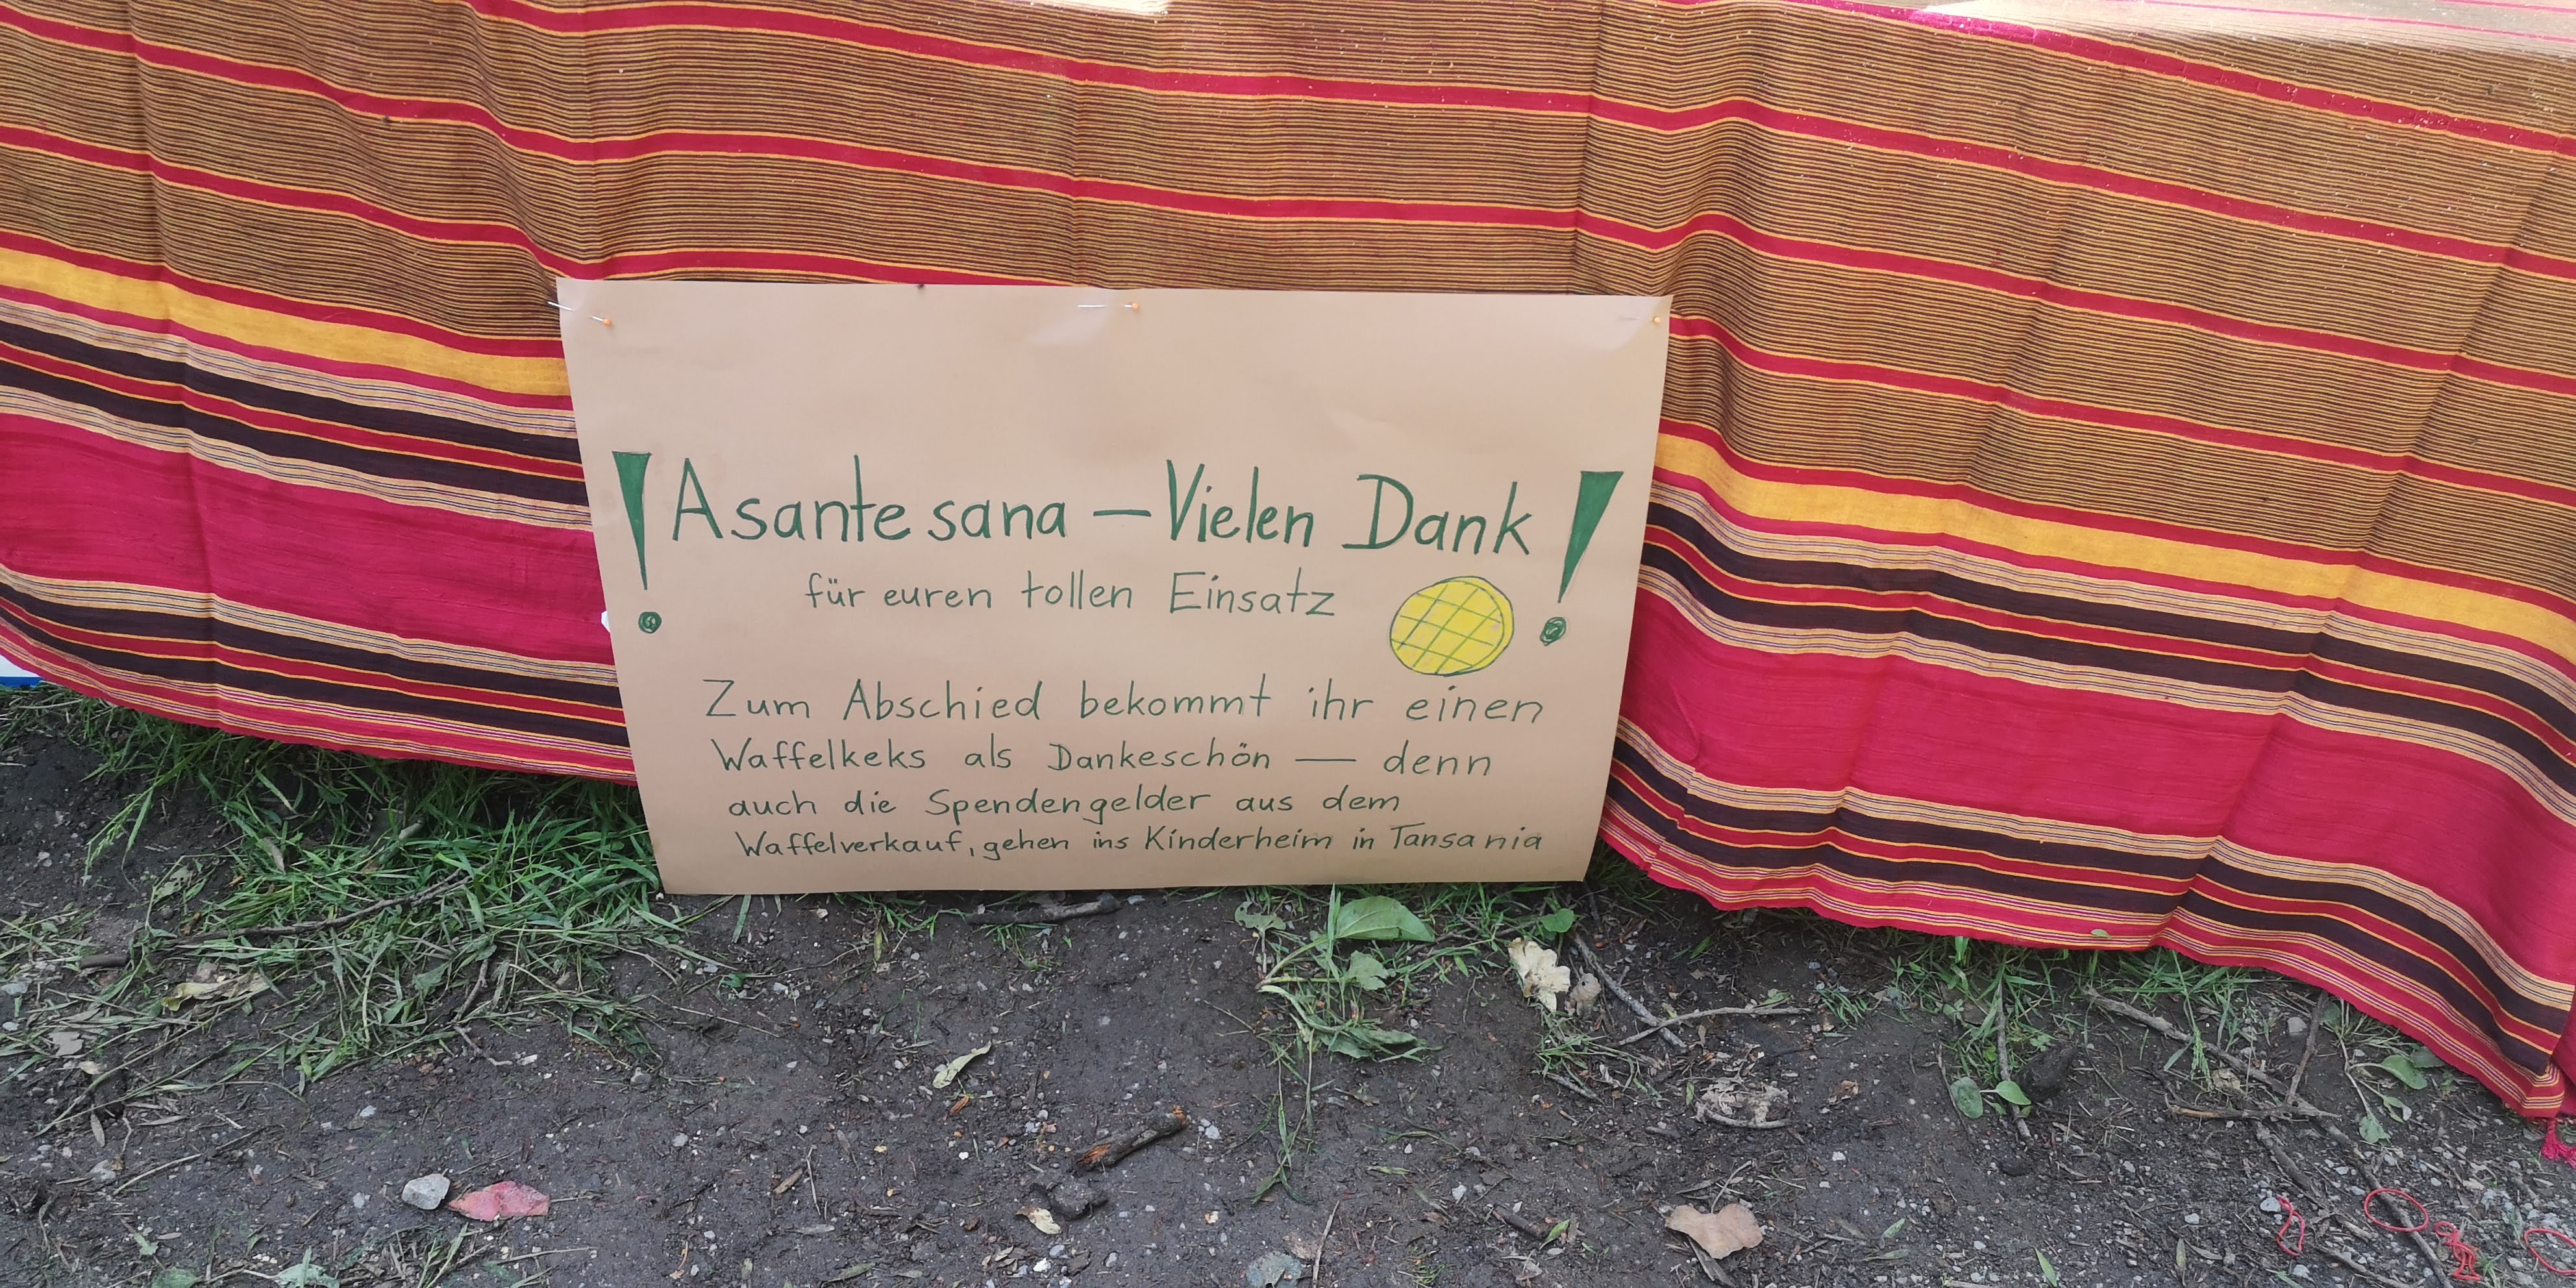 ! Asante sana – Vielen Dank !
für euren tollen Einsatz
Zum Abschied bekommt ihr einen
Waffelkeks als Dankeschön — denn
auch die Spendengelder aus dem
Waffelverkauf, gehen ins Kinderheim in Tansania